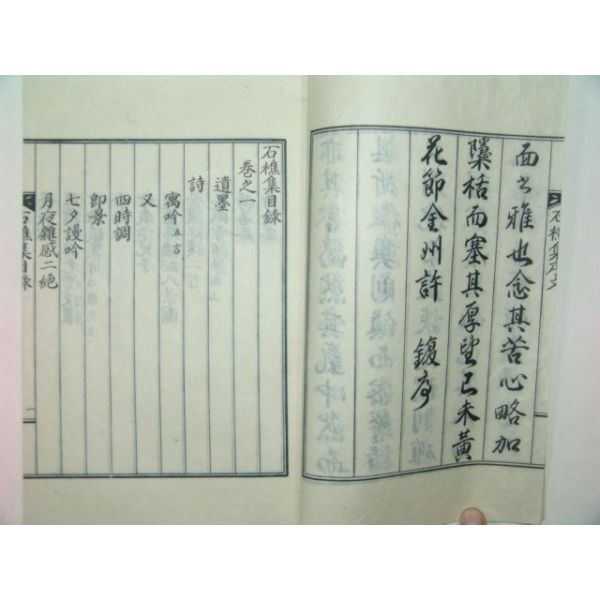 面之雅也念其苦心略加
檃栝而塞其厚望己未黃
花節金州許鍑序
石樵集目錄
卷之一
遺墨
詩
寓吟 五言
又
四時調
卽景
七夕謾吟
月夜雜感二絶
石樵集目錄
一